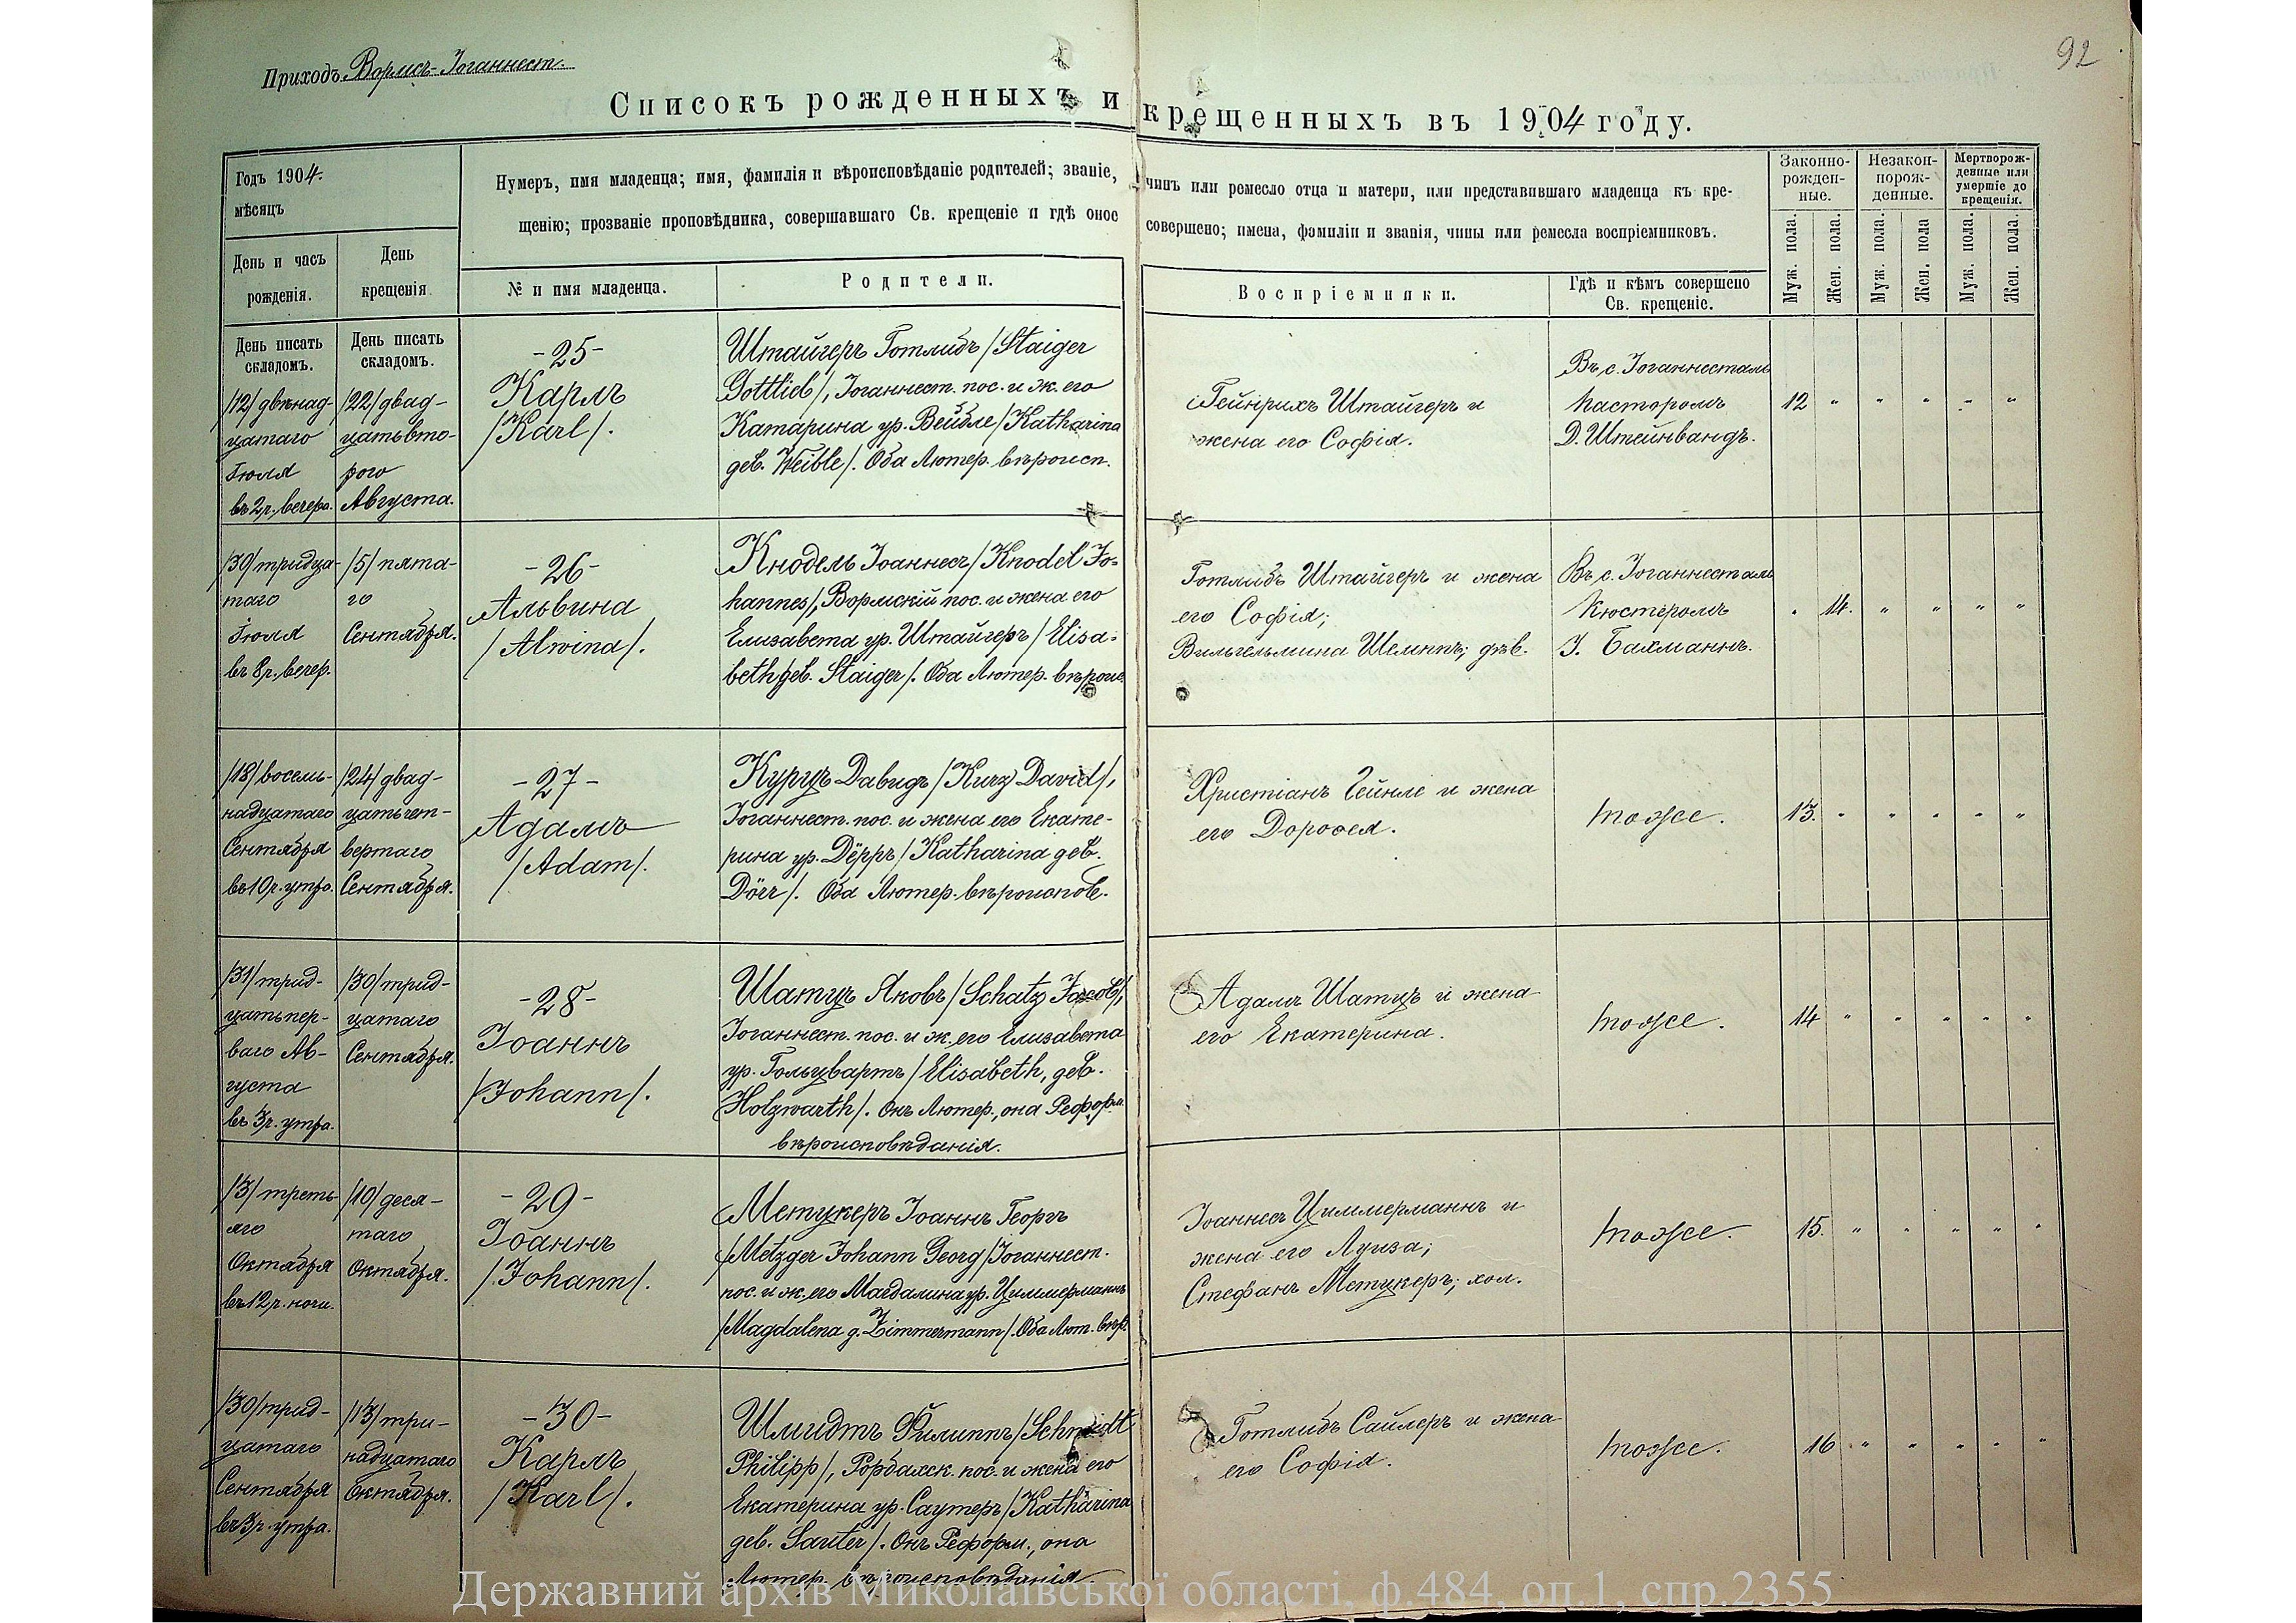 Приходъ Вормсъ-Іоганнест.
92
Списокъ рожденныхъ и крещенныхъ въ 1904 году.
Годъ 1904.
мѣсяцъ
Нумеръ, имя младенца; имя, фамилія и вѣроисповѣданіе родителей; званіе, чинъ или ремесло отца и матери, или представившаго младенца къ кре-
щенію; прозваніе проповѣдника, совершавшаго Св. крещеніе и гдѣ оное совершено; имена, фамиліи и званія, чины или ремесла воспріемниковъ.
Законно-
рожден-
ные.
Незакон-
норож-
денные.
Мертворож-
денные или
умершіе до
крещенія.
День и часъ
рожденія.
День
крещенія
№ и имя младенца.
Родители.
Воспріемники.
Гдѣ и кѣмъ совершено
Св. крещеніе.
Муж. пола.
Жен. пола.
Муж. пола.
Жен. пола
Муж. пола.
Жен. пола.
День писать
складомъ.
День писать
складомъ.
/12/ двѣнад-
цатаго
Іюля
въ 2 ч. вечера.
/22/ двад-
цать вто-
рого
Августа.
-25-
Карлъ
/Karl/.
Штайгеръ Готлибъ /Staiger
Gottlieb/, Іоганнест. пос. и ж. его
Катарина ур. Вейбле /Katharina
geb. Weible/. Оба Лютер. вѣроисп.
Гейнрихъ Штайгеръ и
жена его Софія.
Въ с. Іоганнесталь
пасторомъ
Д. Штейнвандъ.
12 " " " " "
/30/ тридца-
таго
Іюля
въ 8 ч. вечер.
/5/ пята-
го
Сентября.
-26-
Альвина
/Alwina/.
Кнодель Іоаннесъ /Knodel Jo-
hannes/, Вормскій пос. и жена его
Елизавета ур. Штайгеръ /Elisa-
beth geb. Staiger/. Оба Лютер. вѣроис.
Готлибъ Штайгеръ и жена
его Софія;
Вильгельмина дѣв.
Въ с. Іоганнесталь
Кюстеромъ
І. Бахманнъ.
" 14. " " " "
/18/ восемь-
надцатаго
Сентября
въ 10 ч. утра.
/24/ двад-
цать чет-
вертаго
Сентября.
-27-
Адамъ
/Adam/.
Курцъ Давидъ /Kurz David/,
Іоганнест. пос. и жена его Екате-
рина ур. Дёрръ /Katharina geb.
Dörr/. Оба Лютер. вѣроиспов.
Христіанъ Гейнле и жена
его Доротея.
тоже.
13. " " " " "
/31/ трид-
цать пер-
ваго Ав-
густа
въ 3 ч. утра.
/30/ трид-
цатаго
Сентября.
-28-
Іоаннъ
/Johann/.
Шатцъ Яковъ /Schatz Jacob/,
Іоганнест. пос. и ж. его Елизавета
ур. Гольцвартъ /Elisabeth, geb.
Holzwarth/. Онъ Лютер., она Реформ.
вѣроисповѣданія.
Адамъ Шатцъ и жена
его Екатерина.
тоже.
14 " " " " "
/3/ треть-
яго
Октября
въ 12 ч. ночи.
/10/ деся-
таго
Октября.
-29-
Іоаннъ
/Johann/.
Метцкеръ Іоаннъ Георгъ
/Metzger Johann Georg/ Іоганнест.
пос. и ж. его Магдалина ур. Циммерманнъ
/Magdalena g. Zimmermann/. Оба Лют. вѣр.
Іоаннесъ Циммерманнъ и
жена его Луиза;
Стефанъ Метцкеръ; хол.
тоже.
15. " " " " "
/30/ трид-
цатаго
Сентября
въ 3 ч. утра.
/13/ три-
надцатаго
Октября.
-30-
Карлъ
/Karl/.
Шмидтъ Филиппъ /Schmidt
Philipp/, Рорбахск. пос. и жена его
Екатерина ур. Саутеръ /Katharina
geb. Sauter/. Онъ Реформ., она
Лютер. вѣроисповѣданія
Готлибъ Сайлеръ и жена
его Софія.
тоже.
16 " " " " "
Державний архів Миколаївської області, ф.484, оп.1, спр.2355